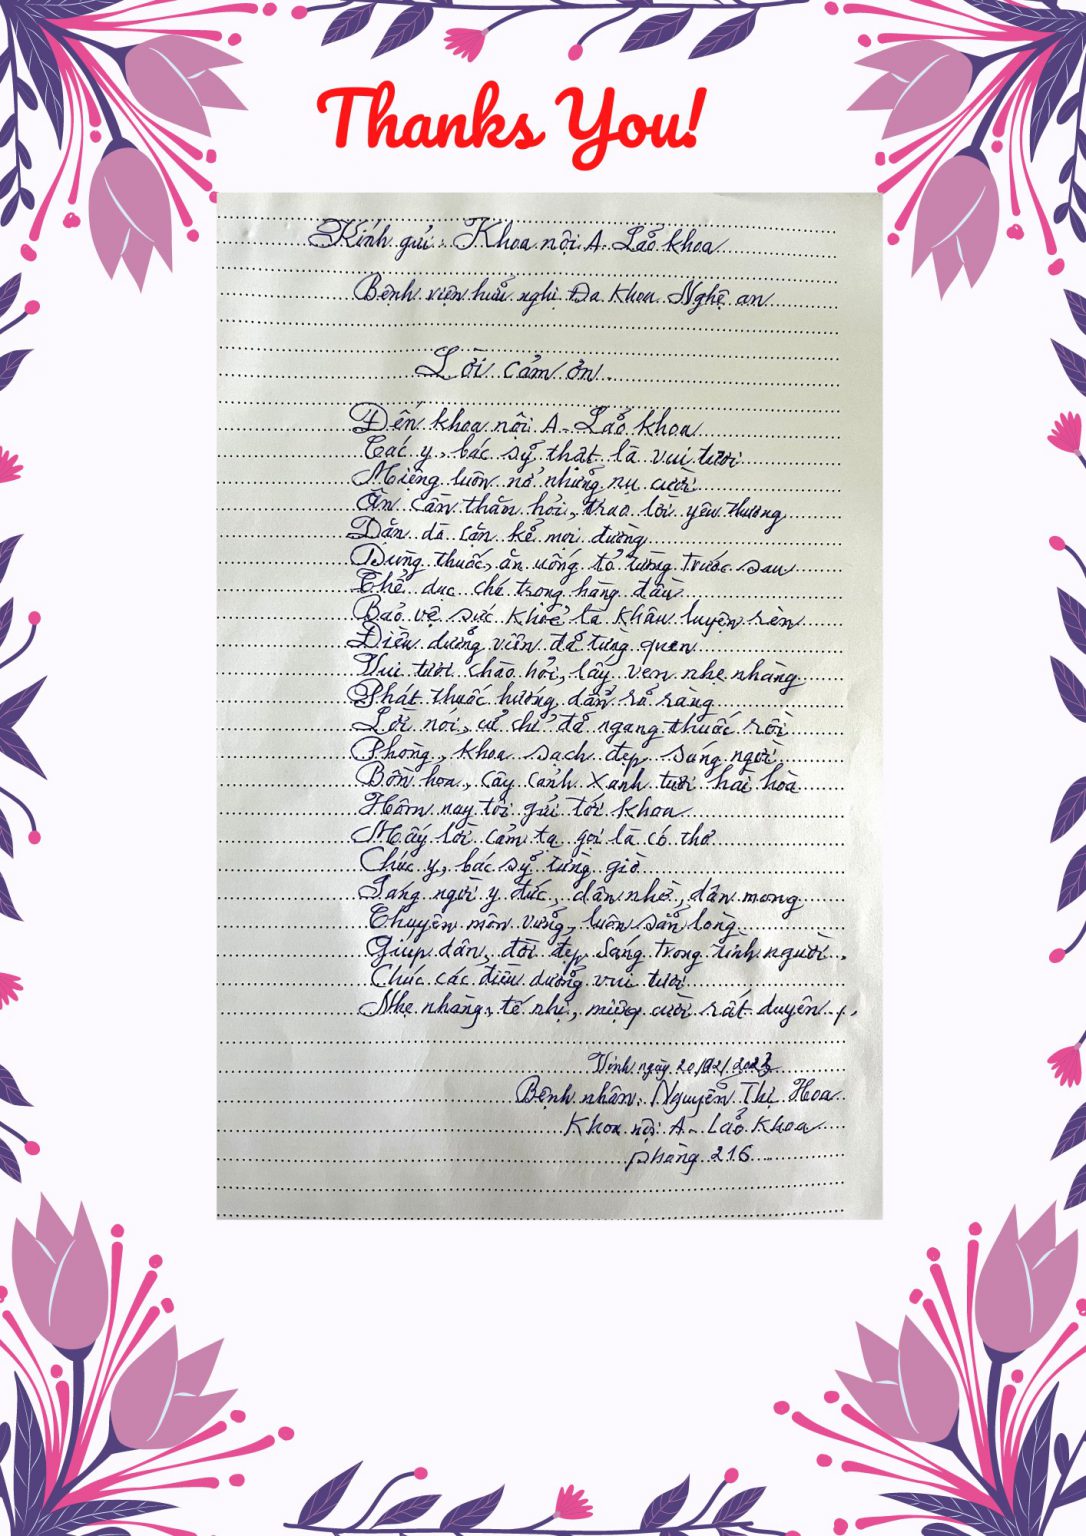 Thanks You!
Kính gửi: Khoa nội A - Lảo khoa
Bệnh viện hưủ nghị Đa Khoa Nghệ an
Lời cảm ơn
Đến khoa nội A - Lảo khoa
Các y, bác sỷ thật là vui tươi
Miệng luôn nở những nụ cười
Ân cần thăm hỏi, trao lời yêu thương
Dặn dò cặn kẻ mọi đường
Dùng thuốc, ăn uống tỏ tường trước sau
Thể dục chú trọng hàng đầu
Bảo vệ sức khỏe là khâu luyện rèn
Điều dưỡng viên đả từng quen
Vui tươi chào hỏi, lấy ven nhẹ nhàng
Phát thuốc hướng dẩn rỏ ràng
Lời nói, cử chỉ đả ngang thuốc rồi
Phòng, khoa sạch đẹp sáng ngời
Bồn hoa, cây cảnh xanh tươi hài hòa
Hôm nay tôi gửi tới khoa
Mấy lời cảm tạ gọi là có thơ
Chúc y, bác sỷ từng giờ
Sáng ngời y đức, dân nhờ, dân mong
Chuyên môn vửng, luôn sẳn lòng
Giúp dân, đời đẹp sáng trong tình người.
Chúc các điều dưỡng vui tươi
Nhẹ nhàng, tế nhị, miệng cười rất duyên
Vinh ngày 20/02/2023
Bệnh nhân: Nguyễn Thị Hoa
Khoa nội A - Lảo Khoa
phòng 216